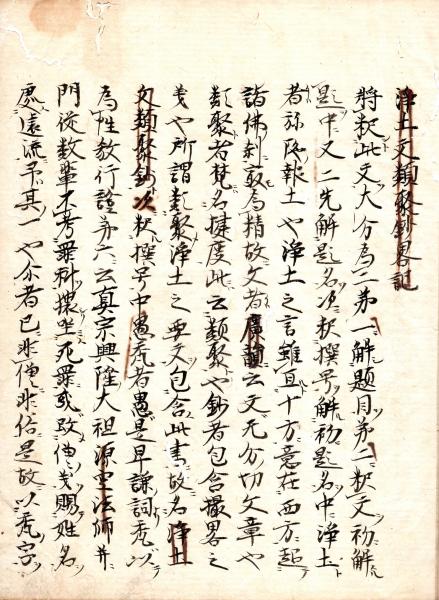 浄土文類聚鈔畧記
将釈此文大分為二第一解題目第二釈文初解
題中又二先解題名次釈撰号解初題名中浄土
者弥陀報土也浄土之言雖亘十方意在西方超
諸佛刹最為精故文者廣韻云文无分切文章也
類聚者梵名揵度此云類聚也鈔者包含撮畧之
義也所謂類聚浄土之要文包含此書故名浄土
文類聚鈔次釈撰号中愚禿者愚是早謙詞禿以
為姓教行證第六云真宗興隆大祖源空法師并
門徒数輩不考罪科猥坐死罪或改僧義賜姓名
處遠流予其一也尓者已非僧非俗是故以禿字